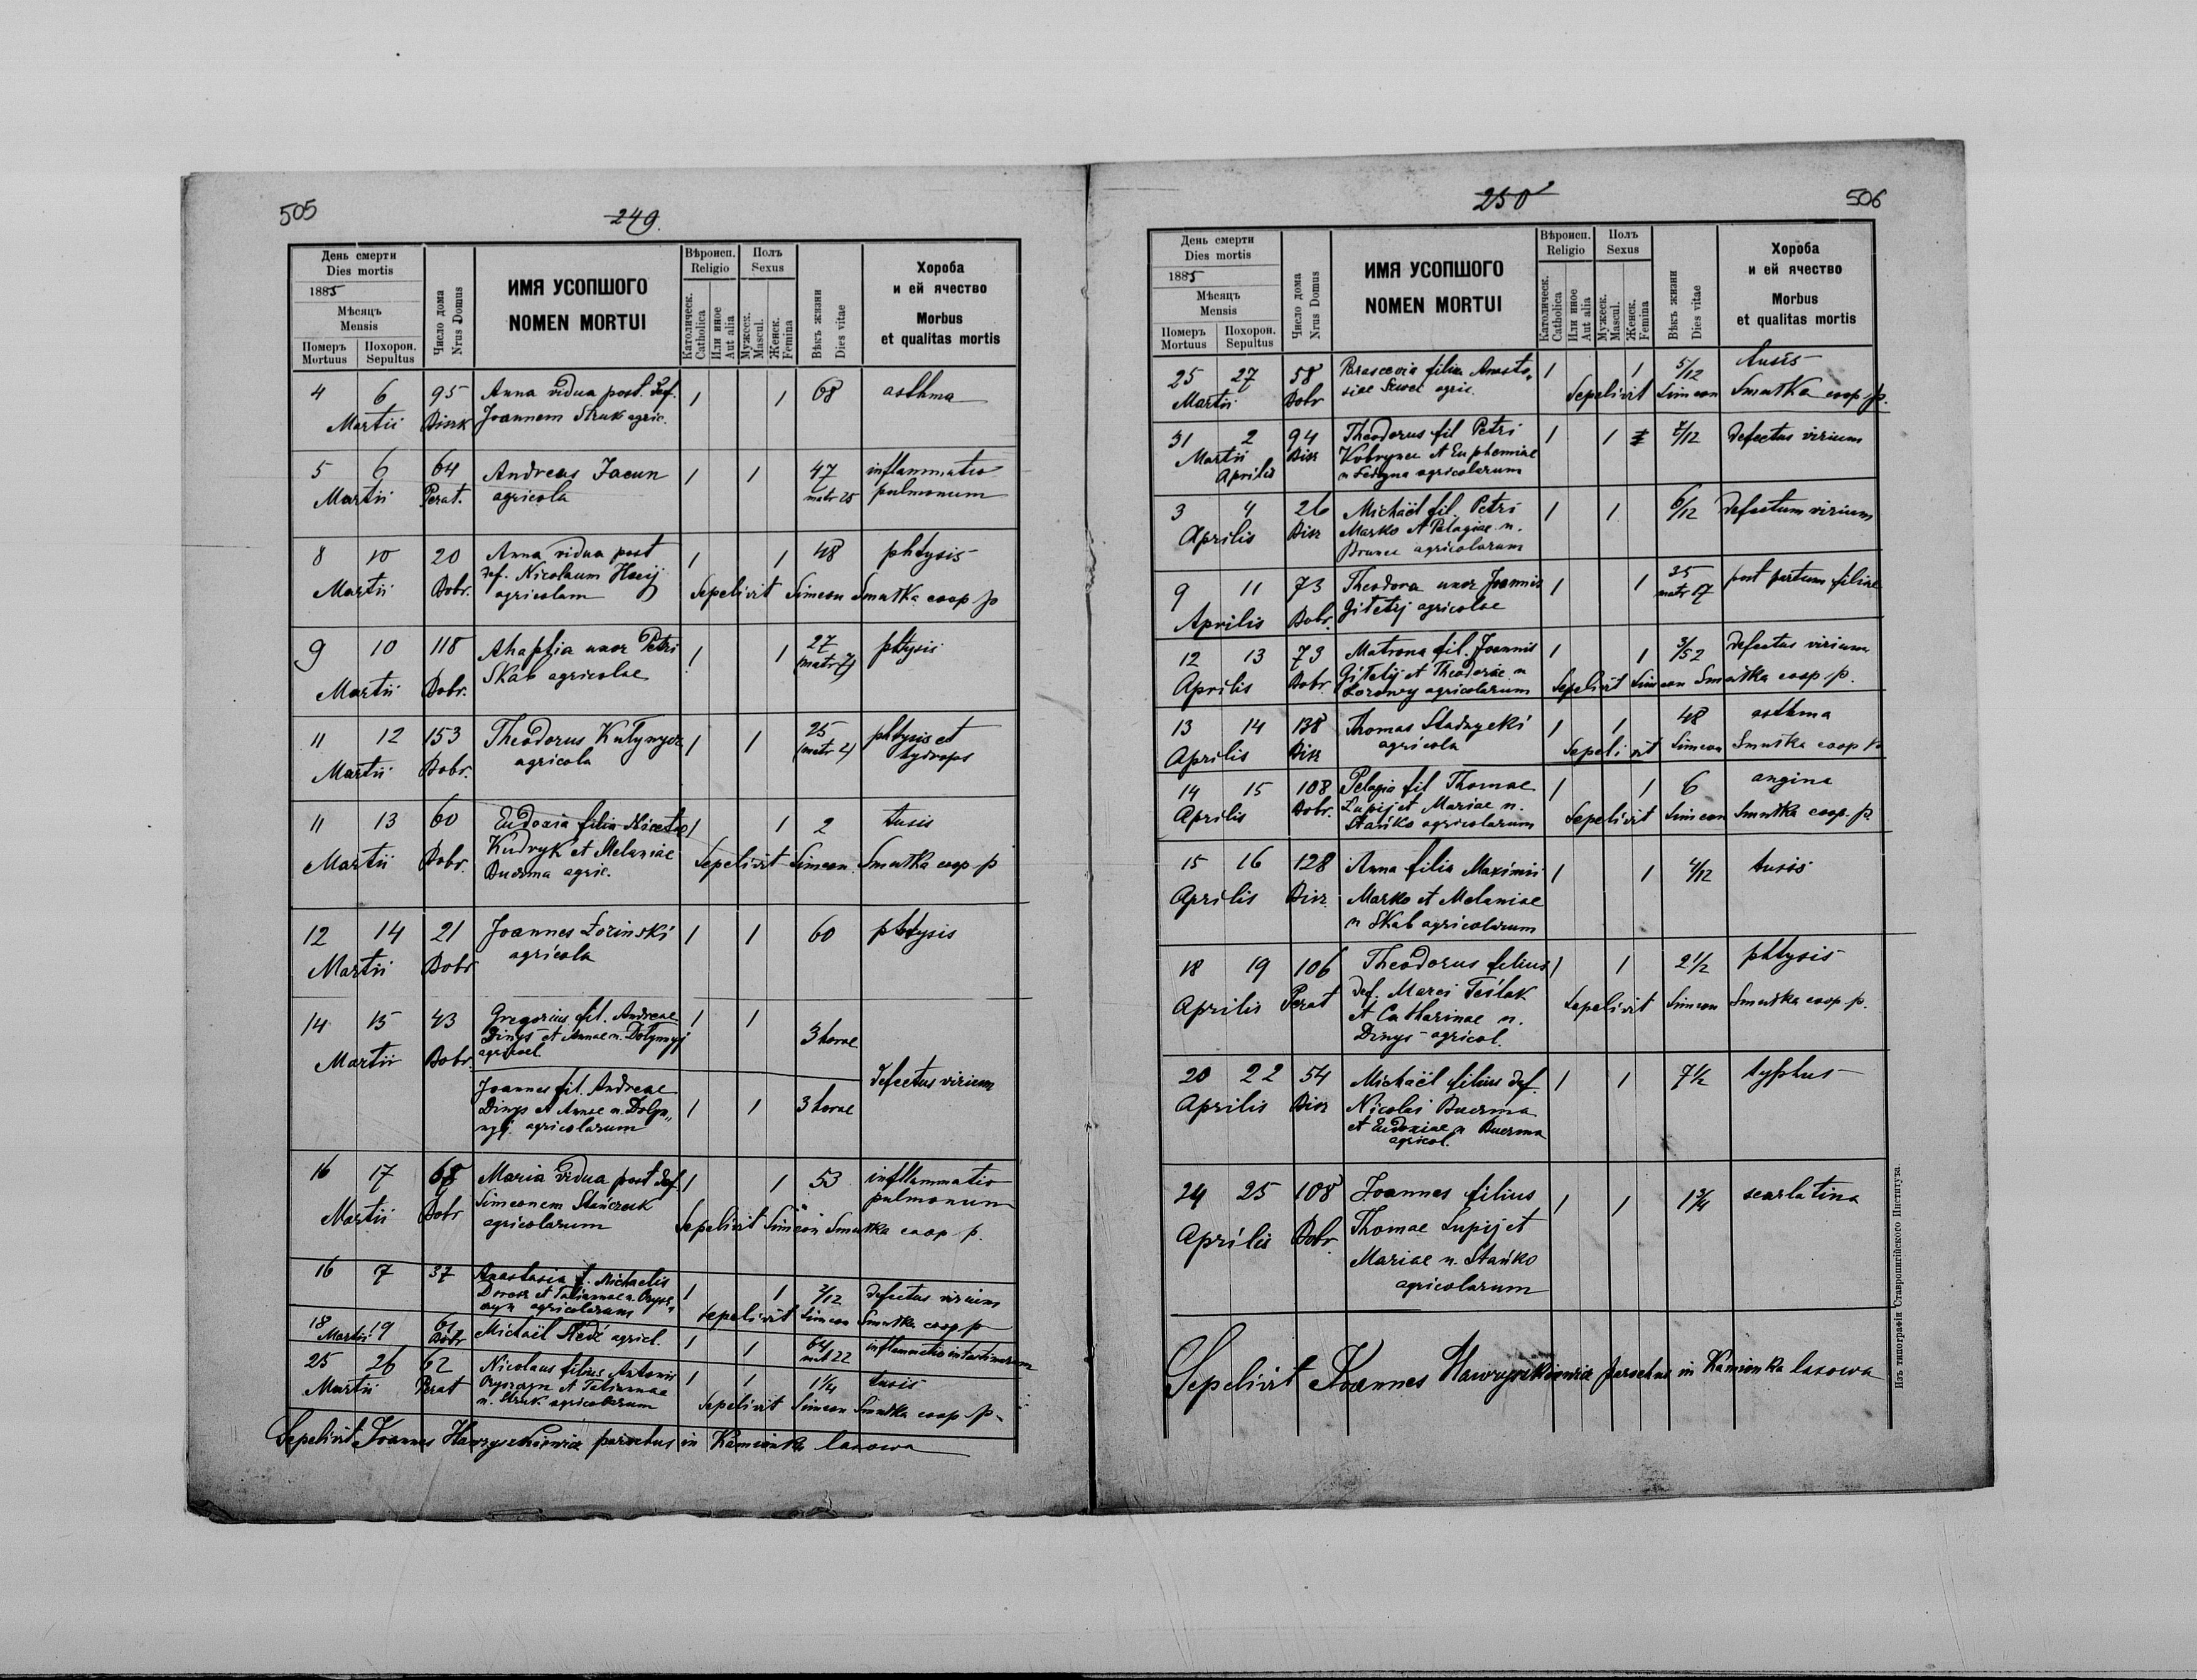 505
249.
День смерти
Dies mortis
1885
Мѣсяцъ
Mensis
Померъ
Mortuus
Похорон.
Sepultus
Число дома
Nrus Domus
ИМЯ УСОПШОГО
NOMEN MORTUI
Вѣроисп.
Religio
Католическ.
Catholica
Или иное
Aut alia
Полъ
Sexus
Мужеск.
Mascul.
Женск.
Femina
Вѣкъ жизни
Dies vitae
Хороба
и ей ячество
Morbus
et qualitas mortis
4 6 95 Anna vidua post. def. 1 1 68 asthma
Martii Joannem Struk agric.
5 6 64 Andreas Jacun 1 1 47 inflammatio
Martii Perat. agricola matr 25 pulmonum
8 10 20 Anna vidua post 1 1 48 phtysis
def. Nicolaum
Martii Dobr. agricolam Sepelivit Simeon Smutka coop p
9 10 118 Ahaphia uxor Petri 1 1 27 phtysis
Martii Dobr. Skab agricolae (matr 7)
11 12 153 Theodorus 1 1 25 phtysis et
Martii Dobr. agricola (matr 2) hydrops
11 13 60 Eudoxia filia 1 1 2 tusis
Martii Dobr. Kudryk et Melaniae Sepelivit Simeon Smutka coop p
Duerma agric.
12 14 21 Joannes Łoziński 1 1 60 phtysis
Martii Dobr agricola
14 15 43 Gregorius fil. Andreae 1 1 3 horae
Dinys et Annae n. Dolynnyj
Martii Dobr. agricol.
defectus virium
Joannes fil. Andreae
Dinys et Annae n. Dolyn„ 1 1 3 horae
nyj agricolarum
16 17 68 Maria vidua post def. 1 1 53 infllammatio
Simeonem Stańczuk pulmonum
Martii Dobr agricolarum Sepelivit Simeon Smutka coop p.
16 7 37 Anastasia f. Michaelis 1 1 2/12 defectus virium
et Tatiannae n.
agricolarum Sepelivit Simeon Smutka coop p
18 19 61 Michaël agricl. 1 1 64 inflammatio intestinorum
Martii Dobr mat 22
25 26 62 Nicolaus filius Antonii 1 1 1 1/4 tusis
Martii Perat et Tatiannae
n. Struk agricolarum Sepelivit Simeon Smutka coop p.
Sepelivit Joannes Hawryszkiewicz parochus in Kamionka lasowa
250
506
День смерти
Dies mortis
1885
Мѣсяцъ
Mensis
Померъ
Mortuus
Похорон.
Sepultus
Число дома
Nrus Domus
ИМЯ УСОПШОГО
NOMEN MORTUI
Вѣроисп.
Religio
Католическ.
Catholica
Или иное
Aut alia
Полъ
Sexus
Мужеск.
Mascul.
Женск.
Femina
Вѣкъ жизни
Dies vitae
Хороба
и ей ячество
Morbus
et qualitas mortis
25 27 58 Parascevia filia Anasta„ 1 1 5/12 tusis
Martii Dobr siae agric. Sepelivit Simeon Smutka coop p.
31 2 94 Theodorus fil Petri 1 1 defectus virium
Martii et Euphemiae
Aprilis n agricolarum
3 4 26 Michaël fil. Petri 1 1 6/12 defectum virium
Aprilis Marko et Pelagiae n.
agricolarum
9 11 73 Theodora uxor Joannis 1 1 35 post partum filiae
Aprilis Dobr. Gitetij agricolae matr 17
12 13 73 Matrona fil. Joannis 1 1 3/52 defectus virium
Aprilis Dobr. Gitetij et Theodorae n
agricolarum Sepelivit Simeon Smutka coop p.
13 14 138 Thomas Stadnycki 1 1 48 asthma
Aprilis agricola Sepelivit Simeon Smutka coop p
14 15 108 Pelagia fil Thomae 1 1 6 angina
Aprilis Dobr. Lupij et Mariae n.
Stańko agricolarum Sepelivit Simeon Smutka coop. p.
15 16 128 Anna filia Maximi 1 1 4/12 tusis
Aprilis Marko et Melaniae
n Skab agricolarum
18 19 106 Theodorus filius 1 1 2 1/2 phtysis
def. Marci Teślak
Aprilis Perat et Catharinae n. Sepelivit Simeon Smutka coop p.
Dinys agricol.
20 22 54 Michaël filius def. 1 1 7 1/2 typhus
Aprilis Nicolai Duerma
et Eudoxiae n Duerma
agricol.
24 25 108 Joannes filius 1 1 1 3/4 scarlatina
Aprilis Dobr. Thomae Lupij et
Mariae n. Stańko
agricolarum
Sepelivit Joannes Hawryszkiewicz parochus in Kamionka lasowa
Изъ типографіи Ставропигійского Института.